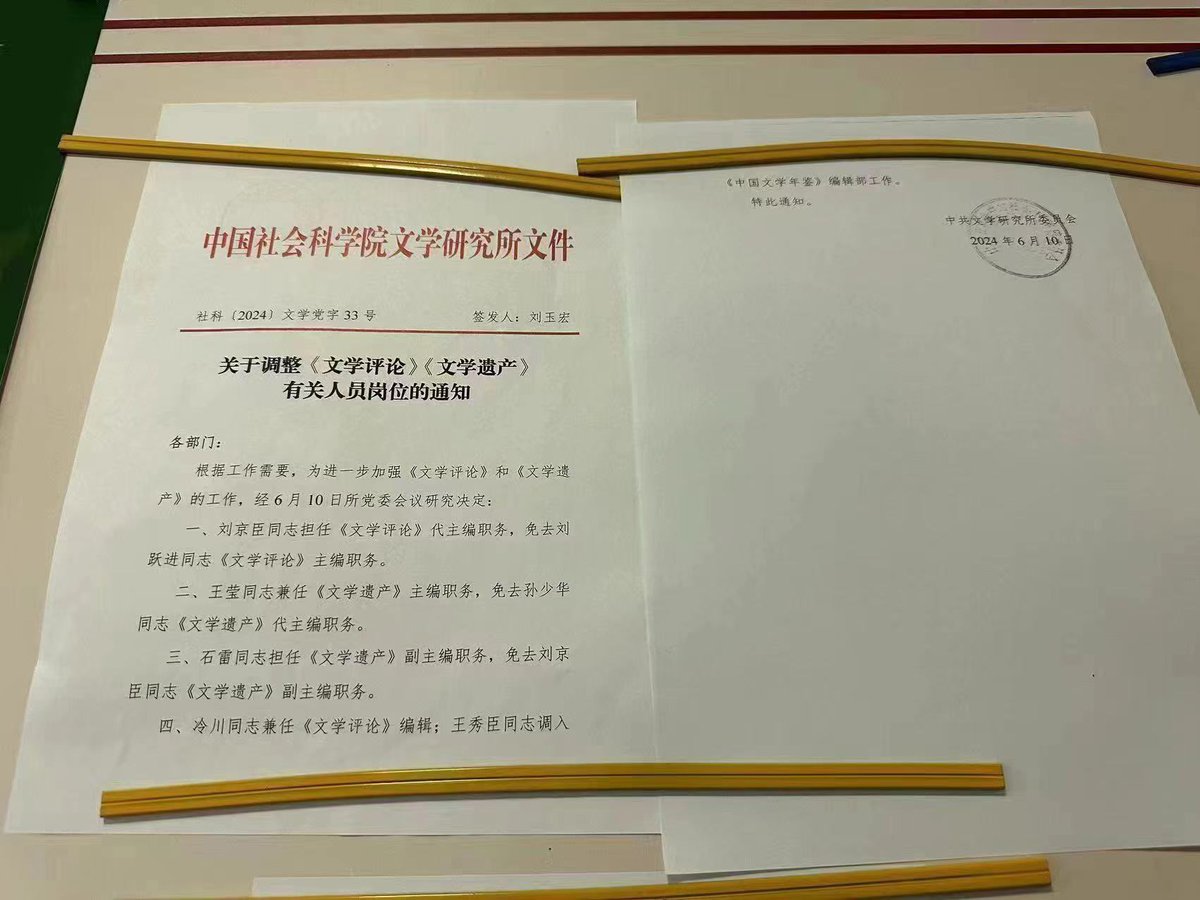 中国社会科学院文学研究所文件
社科〔2024〕文学党字 33 号 签发人：刘玉宏
关于调整《文学评论》《文学遗产》
有关人员岗位的通知
各部门：
根据工作需要，为进一步加强《文学评论》和《文学遗
产》的工作，经 6 月 10 日所党委会议研究决定：
一、刘京臣同志担任《文学评论》代主编职务，免去刘
跃进同志《文学评论》主编职务。
二、王莹同志兼任《文学遗产》主编职务，免去孙少华
同志《文学遗产》代主编职务。
三、石雷同志担任《文学遗产》副主编职务，免去刘京
臣同志《文学遗产》副主编职务。
四、冷川同志兼任《文学评论》编辑；王秀臣同志调入
《中国文学年鉴》编辑部工作。
特此通知。
中共文学研究所委员会
2024 年 6 月 10 日